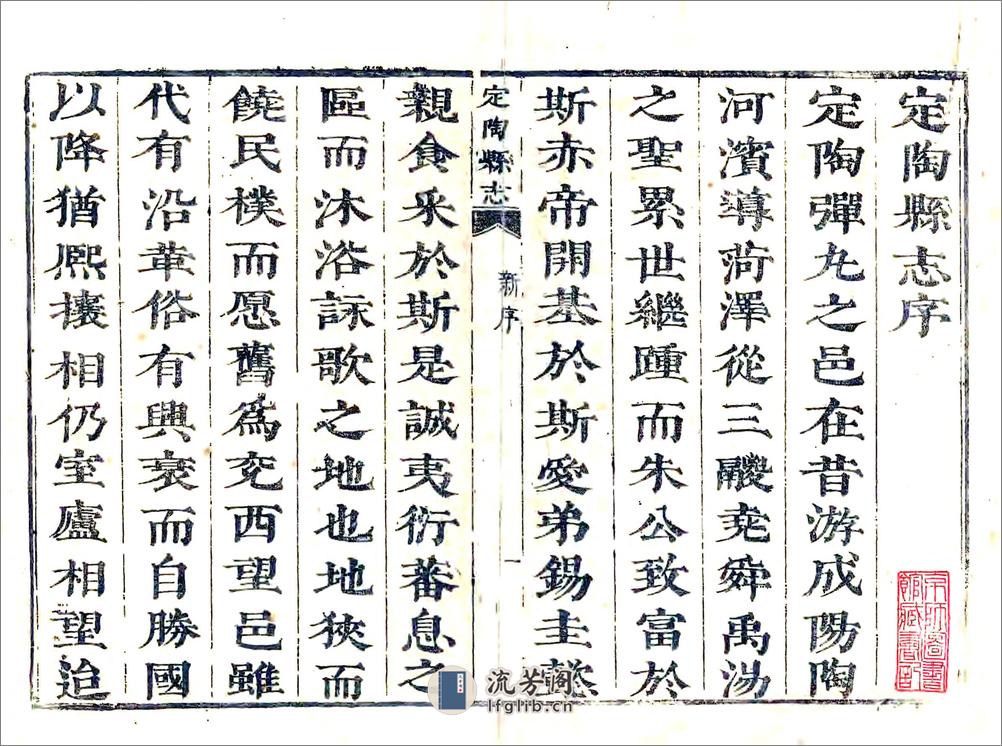 定陶縣志序
定陶彈丸之邑在昔游成陽陶
河濱導菏澤從三朡堯舜禹湯
之聖累世繼踵而朱公致富於
斯赤帝開基於斯愛弟錫圭懿
定陶縣志
新序
一
親食采於斯是誠夷衍蕃息之
區而沐浴詠歌之地也地狹而
饒民樸而愿舊為兗西望邑雖
代有沿革俗有興衰而自勝國
以降猶熙攘相仍室廬相望迨
流芳閣
lfglib.cn